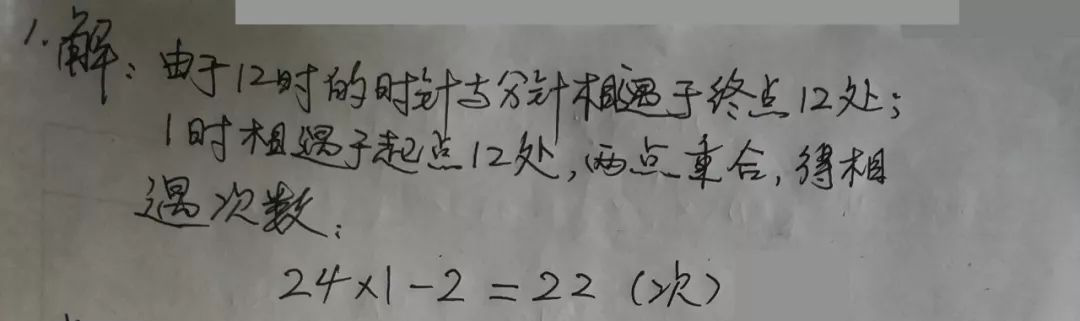 1.解：由于12时的时针与分针相遇于终点12处；
1时相遇于起点12处，两点重合，得相
遇次数：
24×1-2=22（次）